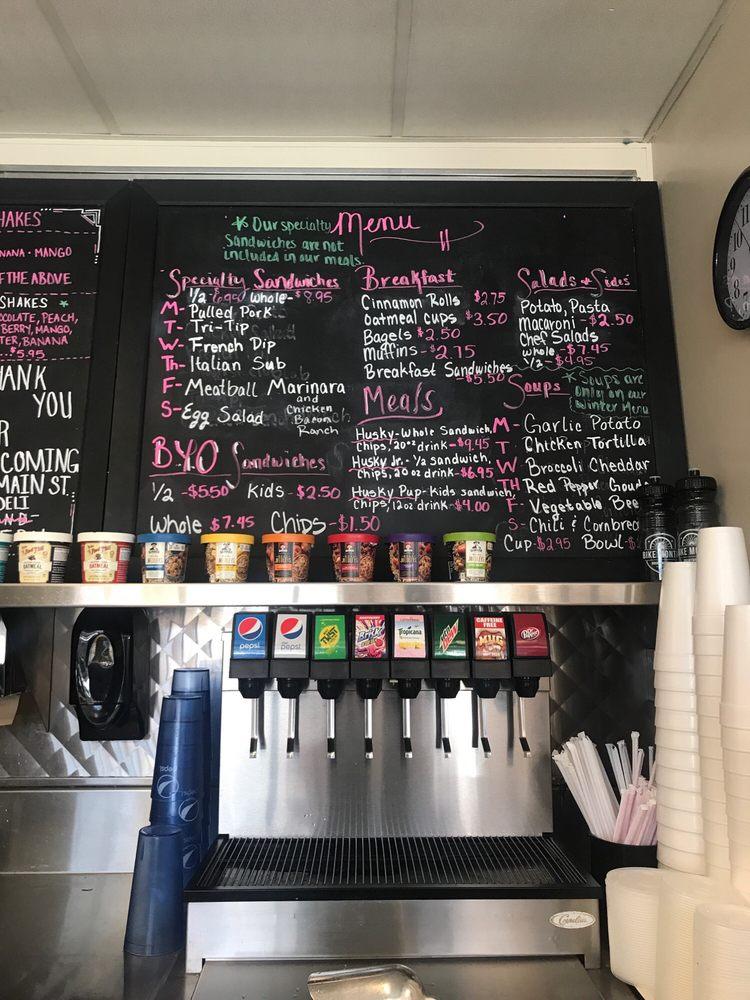 HAKES
NANA • MANGO
F THE ABOVE
SHAKES *
OCOLATE, PEACH,
BERRY, MANGO,
TER, BANANA
$5.95
HANK
YOU
R
COMING
MAIN ST.
DELI
Menu
* Our specialty
Sandwiches are not
included in our meals.
Specialty Sandwiches
1/2 - whole - $8.95
M - Pulled Pork
T - Tri-Tip
W - French Dip
Th - Italian Sub
F - Meatball Marinara
S - Egg Salad and
Chicken
Bacon
Ranch
BYO Sandwiches
1/2 - $5.50 Kids - $2.50
Whole $7.45 Chips - $1.50
Breakfast
Cinnamon Rolls $2.75
Oatmeal cups $3.50
Bagels $2.50
Muffins - $2.75
Breakfast Sandwiches
- $5.50
Meals
Husky - Whole Sandwich,
Chips, 20oz drink - $9.45
Husky Jr. - 1/2 Sandwich,
chips, 20 oz drink - $6.95
Husky Pup - Kids sandwich,
Chips, 12oz drink - $4.00
Salads & Sides
Potato, Pasta
Macaroni - $2.50
Chef Salads
whole - $7.45
1/2 - $4.95
Soups
* Soups are
only on our
Winter Menu
M - Garlic Potato
T - Chicken Tortilla
W - Broccoli Cheddar
TH Red Pepper Goud
F - Vegetable Bee
S - Chili & Cornbread
Cup - $2.95 Bowl - $
OATMEAL
pepsi
pepsi
TWIST
Brisk
Tropicana
CAFFEINE
FREE
MUG
Dr Pepper
pepsi
Cornelius